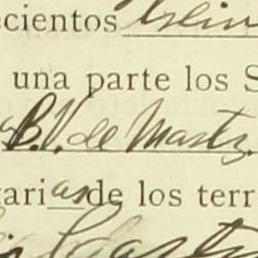 ecientos
una parte los S
B. V. de Mastz
garias de los terr